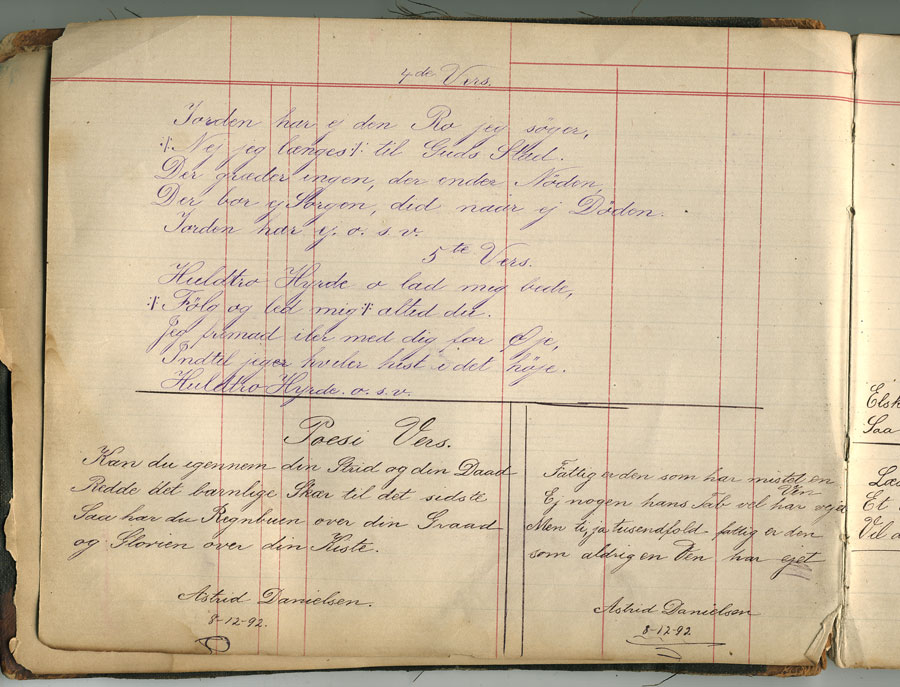 4de Vers.
Jorden har ej den Ro jeg søger,
⁒ Nej jeg længes ⁒ til Guds Stad.
Der græder ingen, der ender Nöden,
Der bor ej Sorgen, did naar ej Døden.
Jorden har ej. o. s. v.
5te Vers.
Huldtro Hyrde o lad mig bede,
⁒ Fölg og led mig ⁒ altid du.
Jeg fremad iler med dig for Øje,
Indtil jeg er hviler hist i det höje.
Huldtro Hyrde. o. s. v.
Poesi Vers.
Kan du igennem din Strid og din Daad
Redde det barnlige Skær til det sidste
Saa har du Regnbuen over din Graad
og Glorien over din Kiste.
Astrid Danielsen.
8-12-92.
Fattig er den som har mistet en
Ven
Ej nogen hans Tab vel har vejet
Men ti, ja tusendfold fattig er den
som aldrig en Ven har ejet
Astrid Danielsen
8-12-92
Elsk
Saa
Læ
Et
Vil